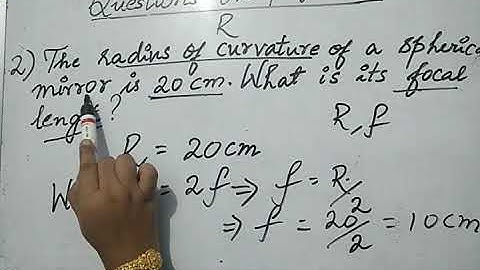 Questions
R
2) The radius of curvature of a spherica
mirror is 20 cm. What is its focal
length ?
R, f
R = 20cm
W = 2f ⇒ f = R/2
⇒ f = 20/2 = 10cm